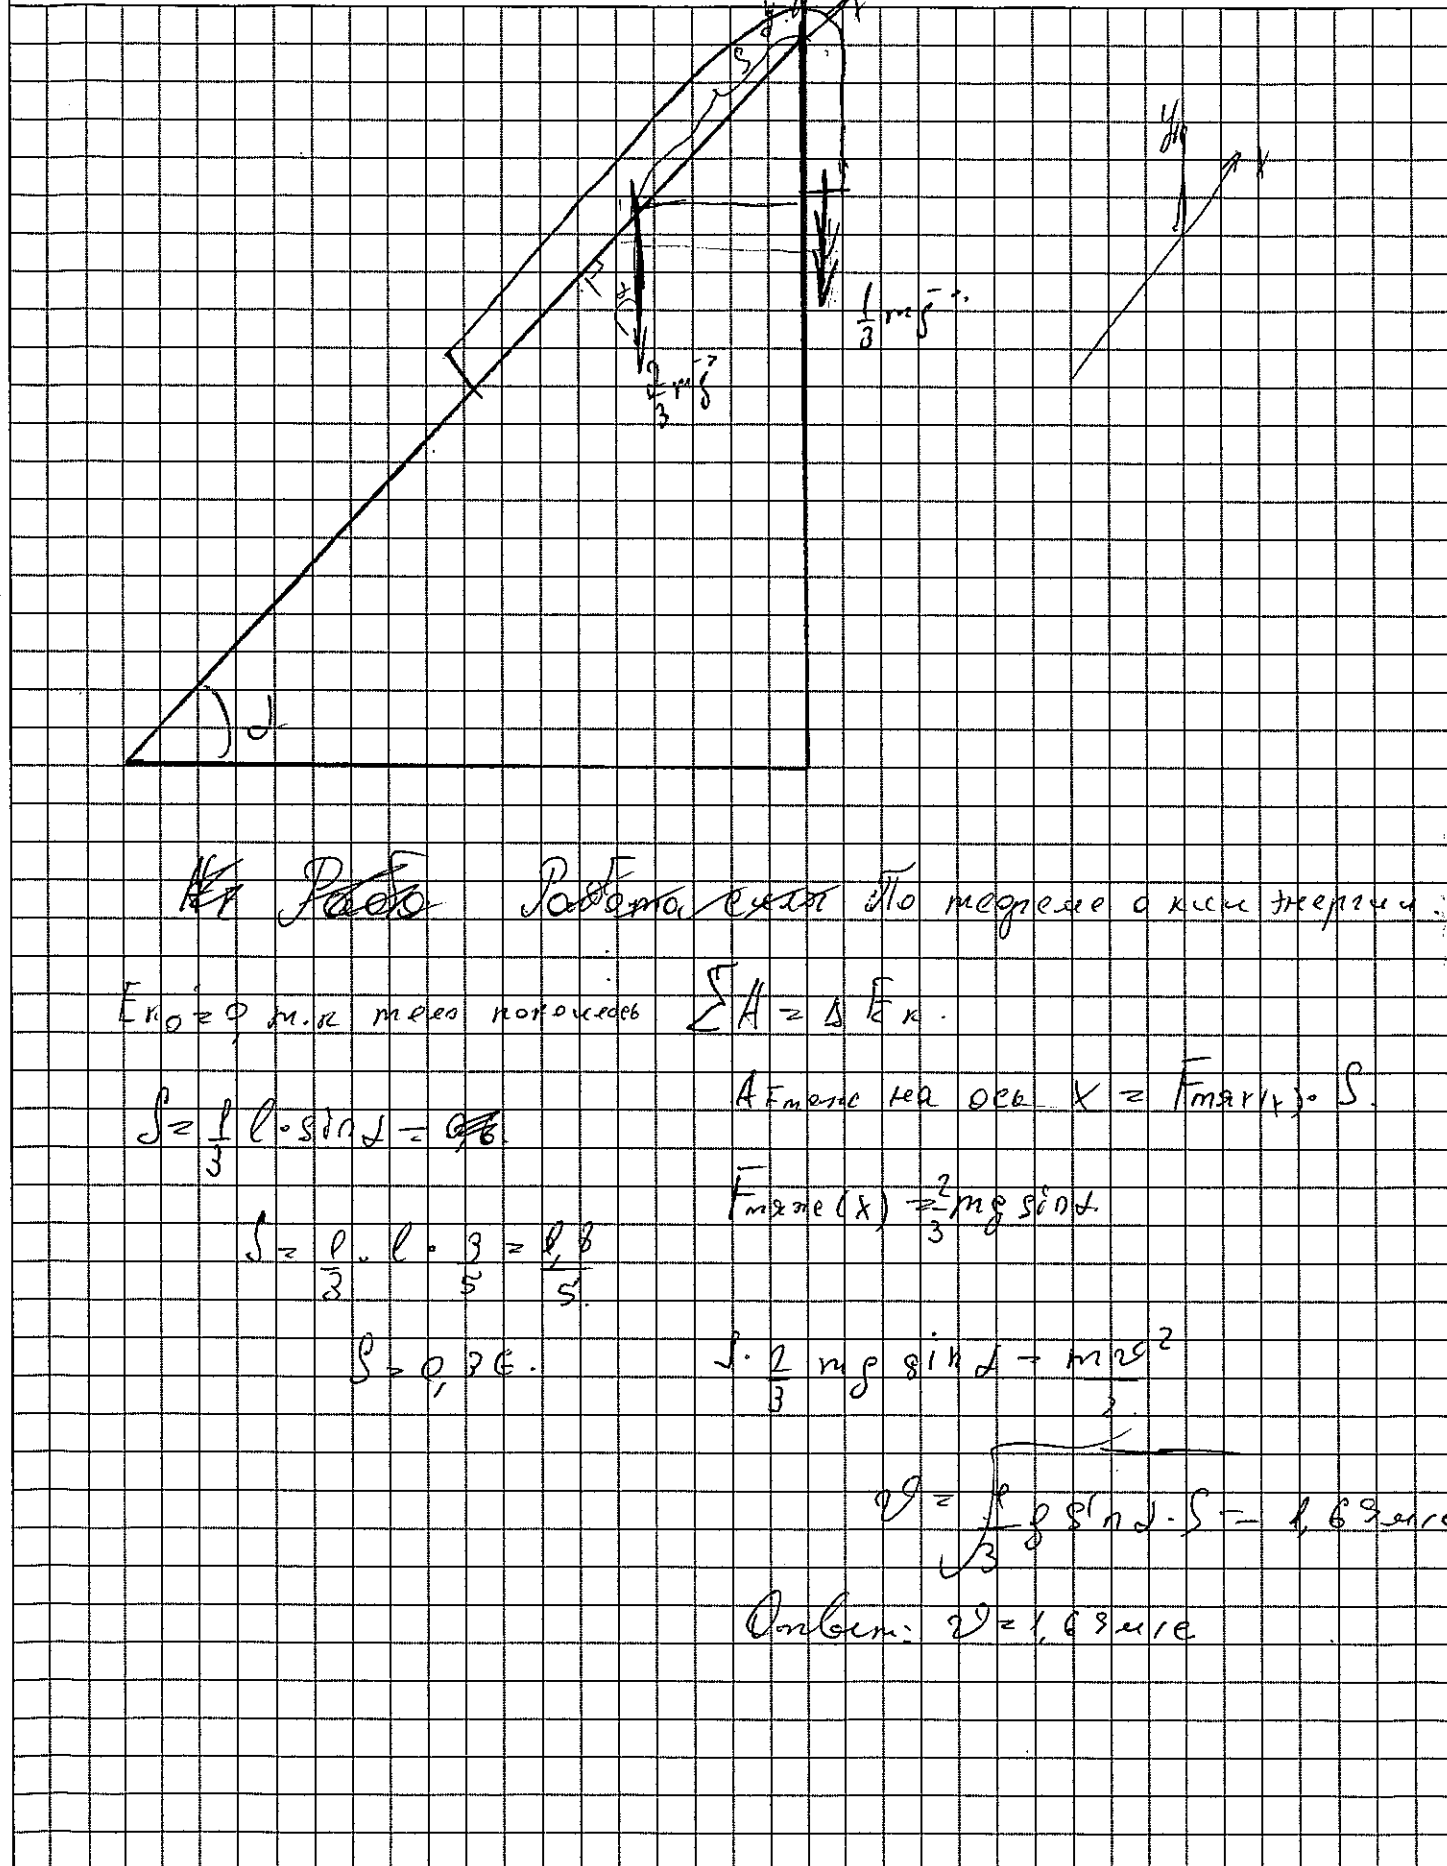 y x
S
y
x
β
α
1/3 mg
2/3 mg
α
По теореме о кин энергии.
Eк₀ = 0, т.к тело покоилось ΣA = ΔEк.
AFтяж на ось x = Fтяж(x) · S.
S = 1/3 l · sin α =
Fтяж(x) = 2/3 mg sin α.
S = 1/3 · l · 3/5 = 1,8/5
S = 0,36. S · 2/3 mg sin α = mv²
v = √ g sin α · S = 1,69 м/с
Ответ: v = 1,69 м/с